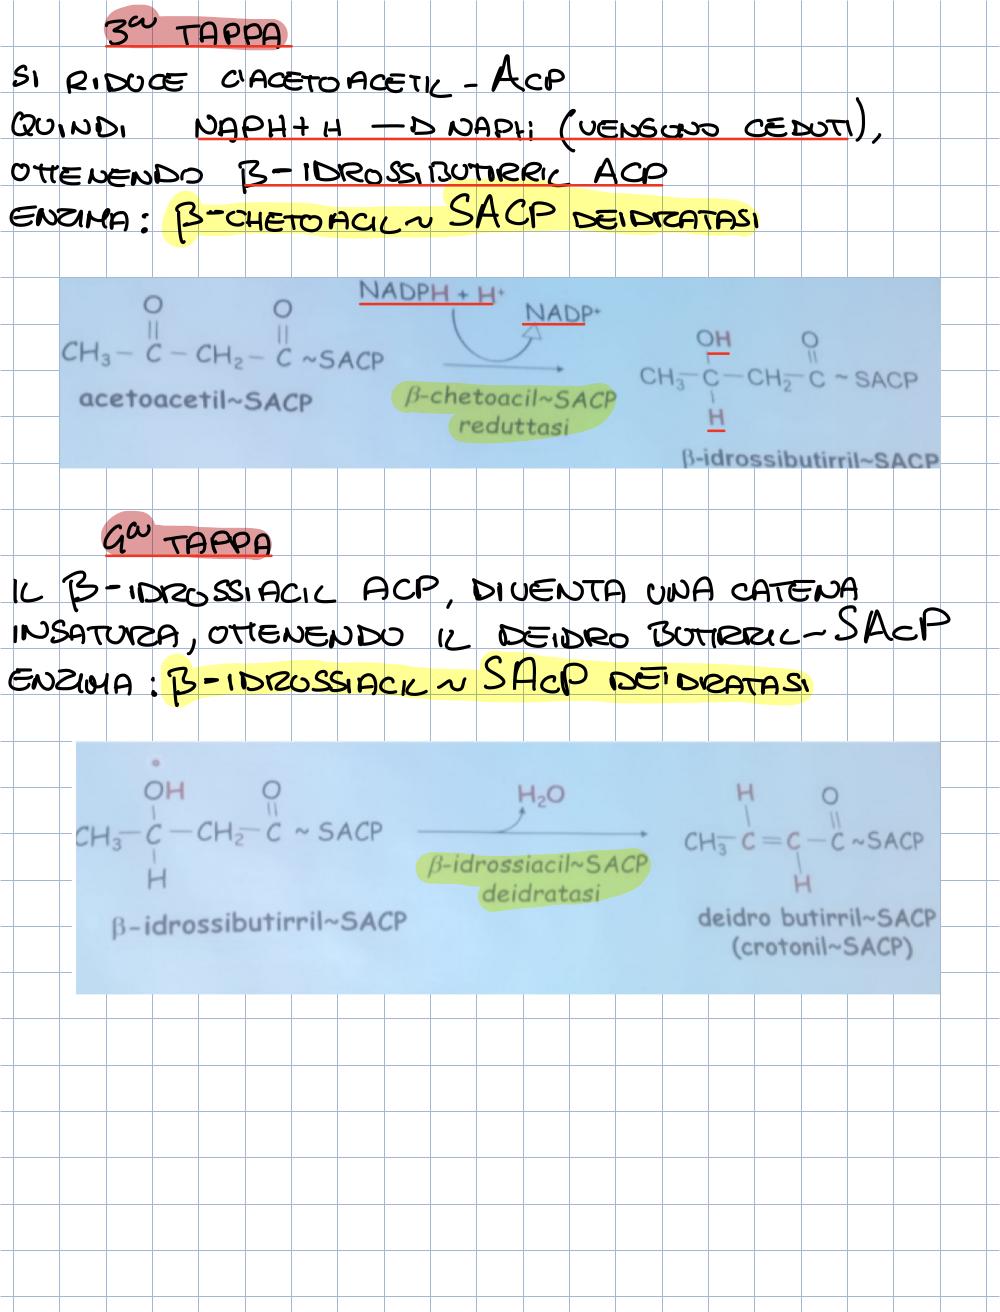 3a TAPPA
SI RIDUCE L'ACETOACETIL - ACP
QUINDI NAPH + H —D NAPH (VENGONO CEDUTI),
OTTENENDO β-IDROSSIBUTIRRIL ACP
ENZIMA: β-CHETOACIL ~ SACP DEIDRATASI
O O NADPH + H⁺
NADP⁺
CH₃ – C – CH₂ – C ~SACP
acetoacetil~SACP
β-chetoacil~SACP
reduttasi
OH O
CH₃ – C – CH₂ – C ~ SACP
H
β-idrossibutirril~SACP
4a TAPPA
IL β-IDROSSIACIL ACP, DIVENTA UNA CATENA
INSATURA, OTTENENDO IL DEIDRO BUTIRRIL~SACP
ENZIMA: β-IDROSSIACIL ~ SACP DEIDRATASI
OH O
CH₃ – C – CH₂ – C ~ SACP
H
β-idrossibutirril~SACP
H₂O
β-idrossiacil~SACP
deidratasi
H O
CH₃ – C = C – C ~SACP
H
deidro butirril~SACP
(crotonil~SACP)